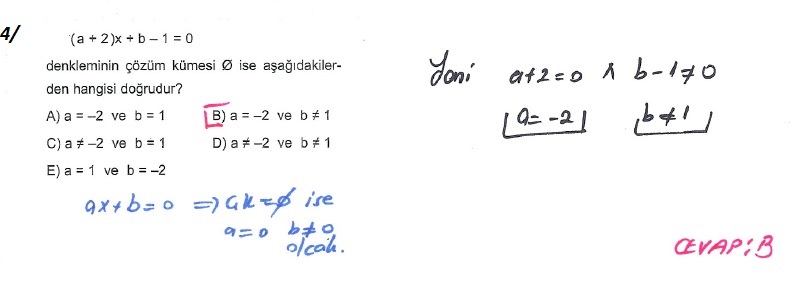 4/
(a + 2)x + b – 1 = 0
denkleminin çözüm kümesi Ø ise aşağıdakiler-
den hangisi doğrudur?
A) a = –2 ve b = 1
B) a = –2 ve b ≠ 1
C) a ≠ –2 ve b = 1
D) a ≠ –2 ve b ≠ 1
E) a = 1 ve b = –2
ax+b=0 => ÇK=∅ ise
a=0 b≠0
olcak.
Yani a+2=0 ∧ b-1≠0
a=-2 b≠1
CEVAP:B